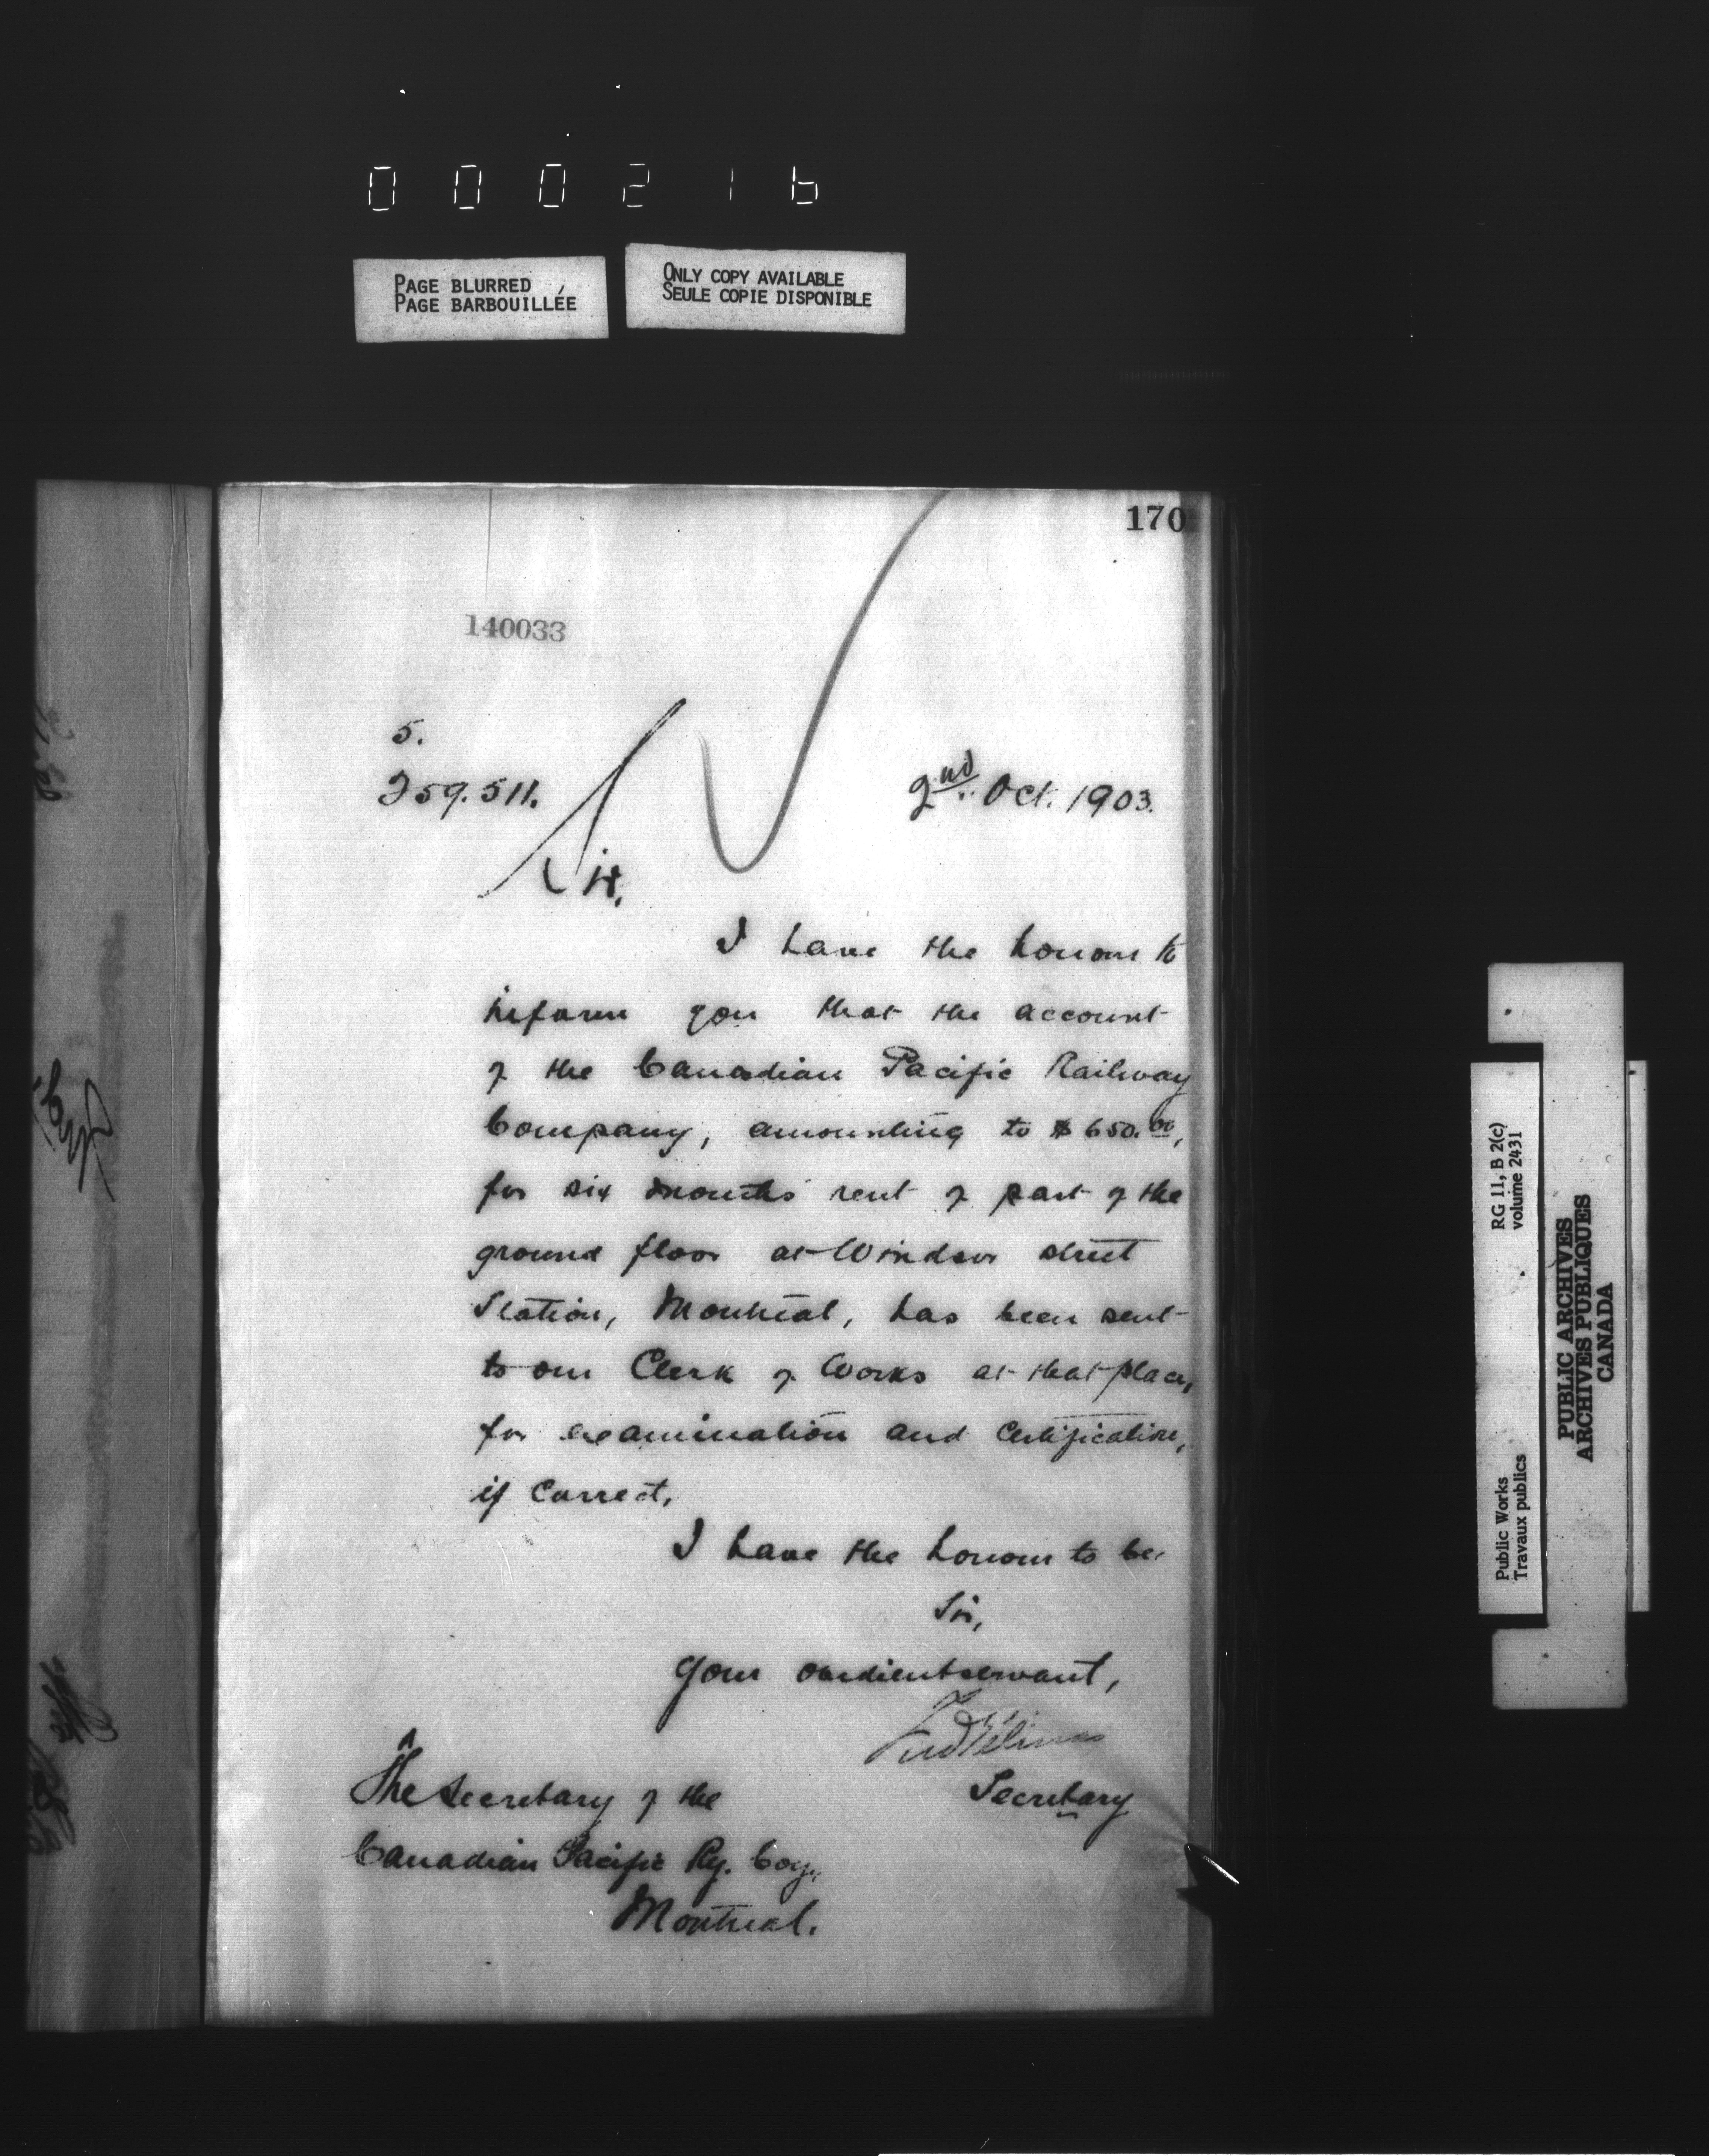 000216
PAGE BLURRED
PAGE BARBOUILLÉE
ONLY COPY AVAILABLE
SEULE COPIE DISPONIBLE
170
140033
5.
259.511.
2nd Oct. 1903.
Sir,
I have the honour to
inform you that the account
of the Canadian Pacific Railway
Company, amounting to $650.00,
for six months rent of part of the
ground floor at Windsor street
Station, Montreal, has been sent
to our Clerk of Works at that place,
for examination and certification,
if correct.
I have the honour to be,
Sir,
Your obedient servant,
Secretary
The Secretary of the
Canadian Pacific Ry. Coy.,
Montreal.
RG 11, B 2(c)
volume 2431
Public Works
Travaux publics
PUBLIC ARCHIVES
ARCHIVES PUBLIQUES
CANADA